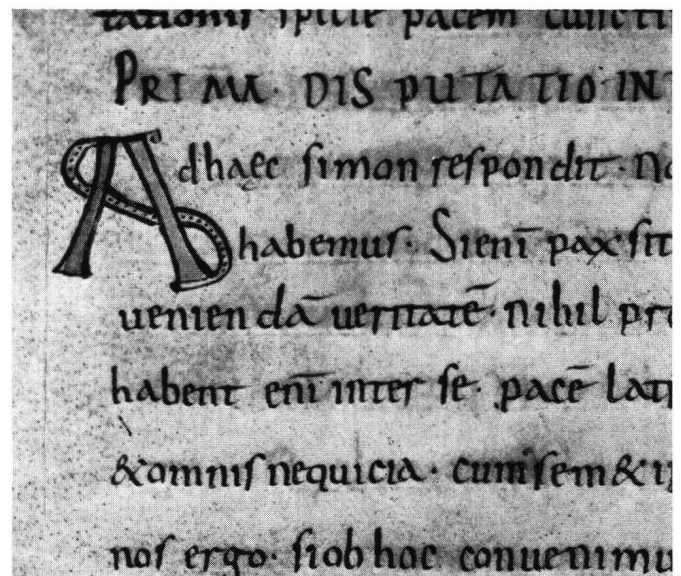 tationis spilie pacem cuncti
PRIMA· DISPUTATIO· IN
Adhaec simon respondit· No
habemus· Sieni̅ pax sit
uenienda̅ ueritate̅· nihil pro
habent eni̅ inter se· pace̅ latr
&omnis nequicia· cumsem&i
nos ergo· siob hoc conuenimu